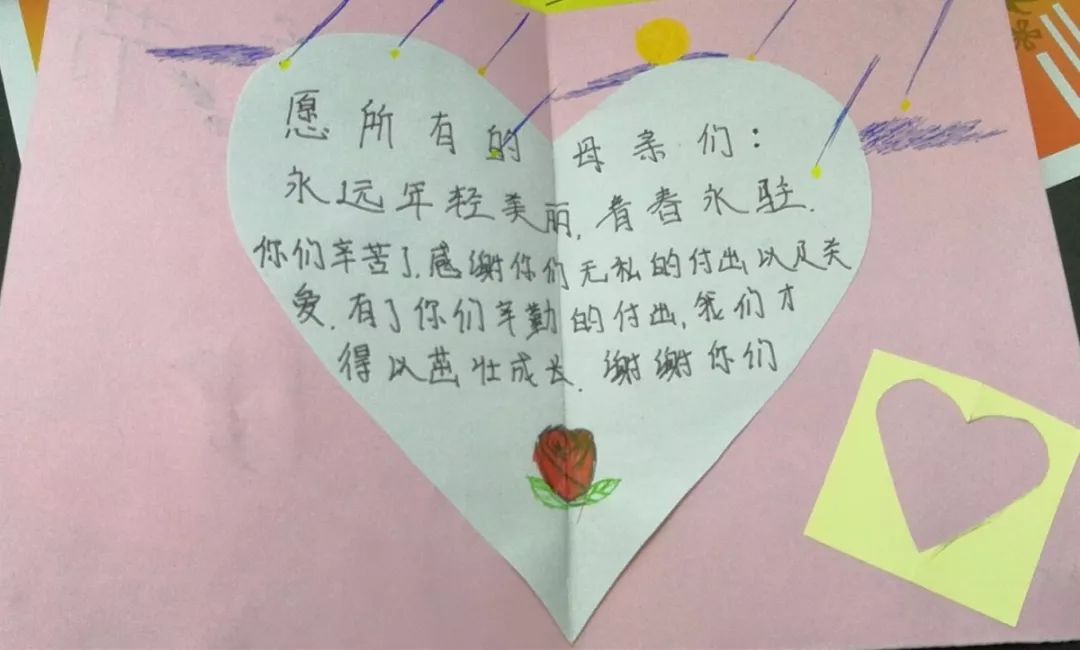 愿所有的母亲们：
永远年轻美丽，青春永驻.
你们辛苦了，感谢你们无私的付出以及关
爱.有了你们辛勤的付出，我们才
得以茁壮成长.谢谢你们